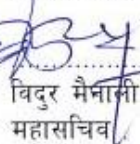 विदुर मैनाली
महासचिव